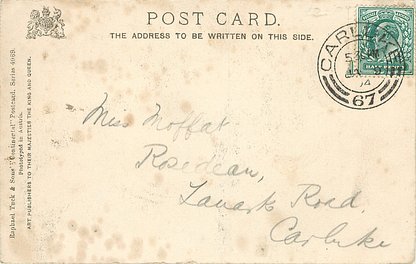 POST CARD.
THE ADDRESS TO BE WRITTEN ON THIS SIDE.
Raphael Tuck & Sons' "Continental" Postcard, Series 4069.
Phototyped in Austria.
ART PUBLISHERS TO THEIR MAJESTIES THE KING AND QUEEN.
CARLUKE
67
Miss Moffat
Rosedean,
Lanark Road,
Carluke